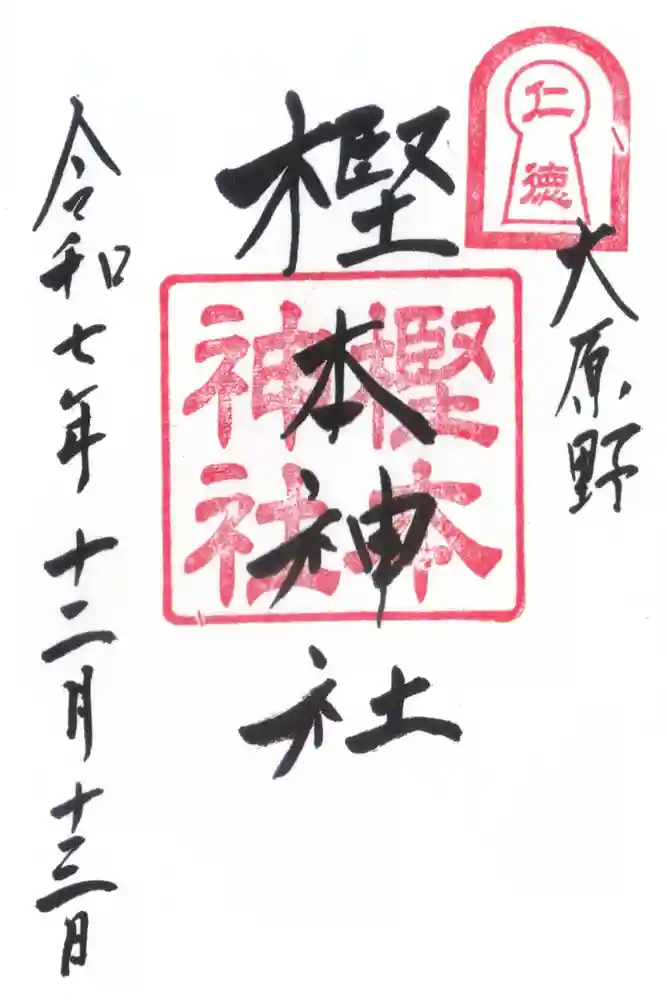 仁徳
大原野
樫本神社
樫本
神社
令和七年十二月十三日